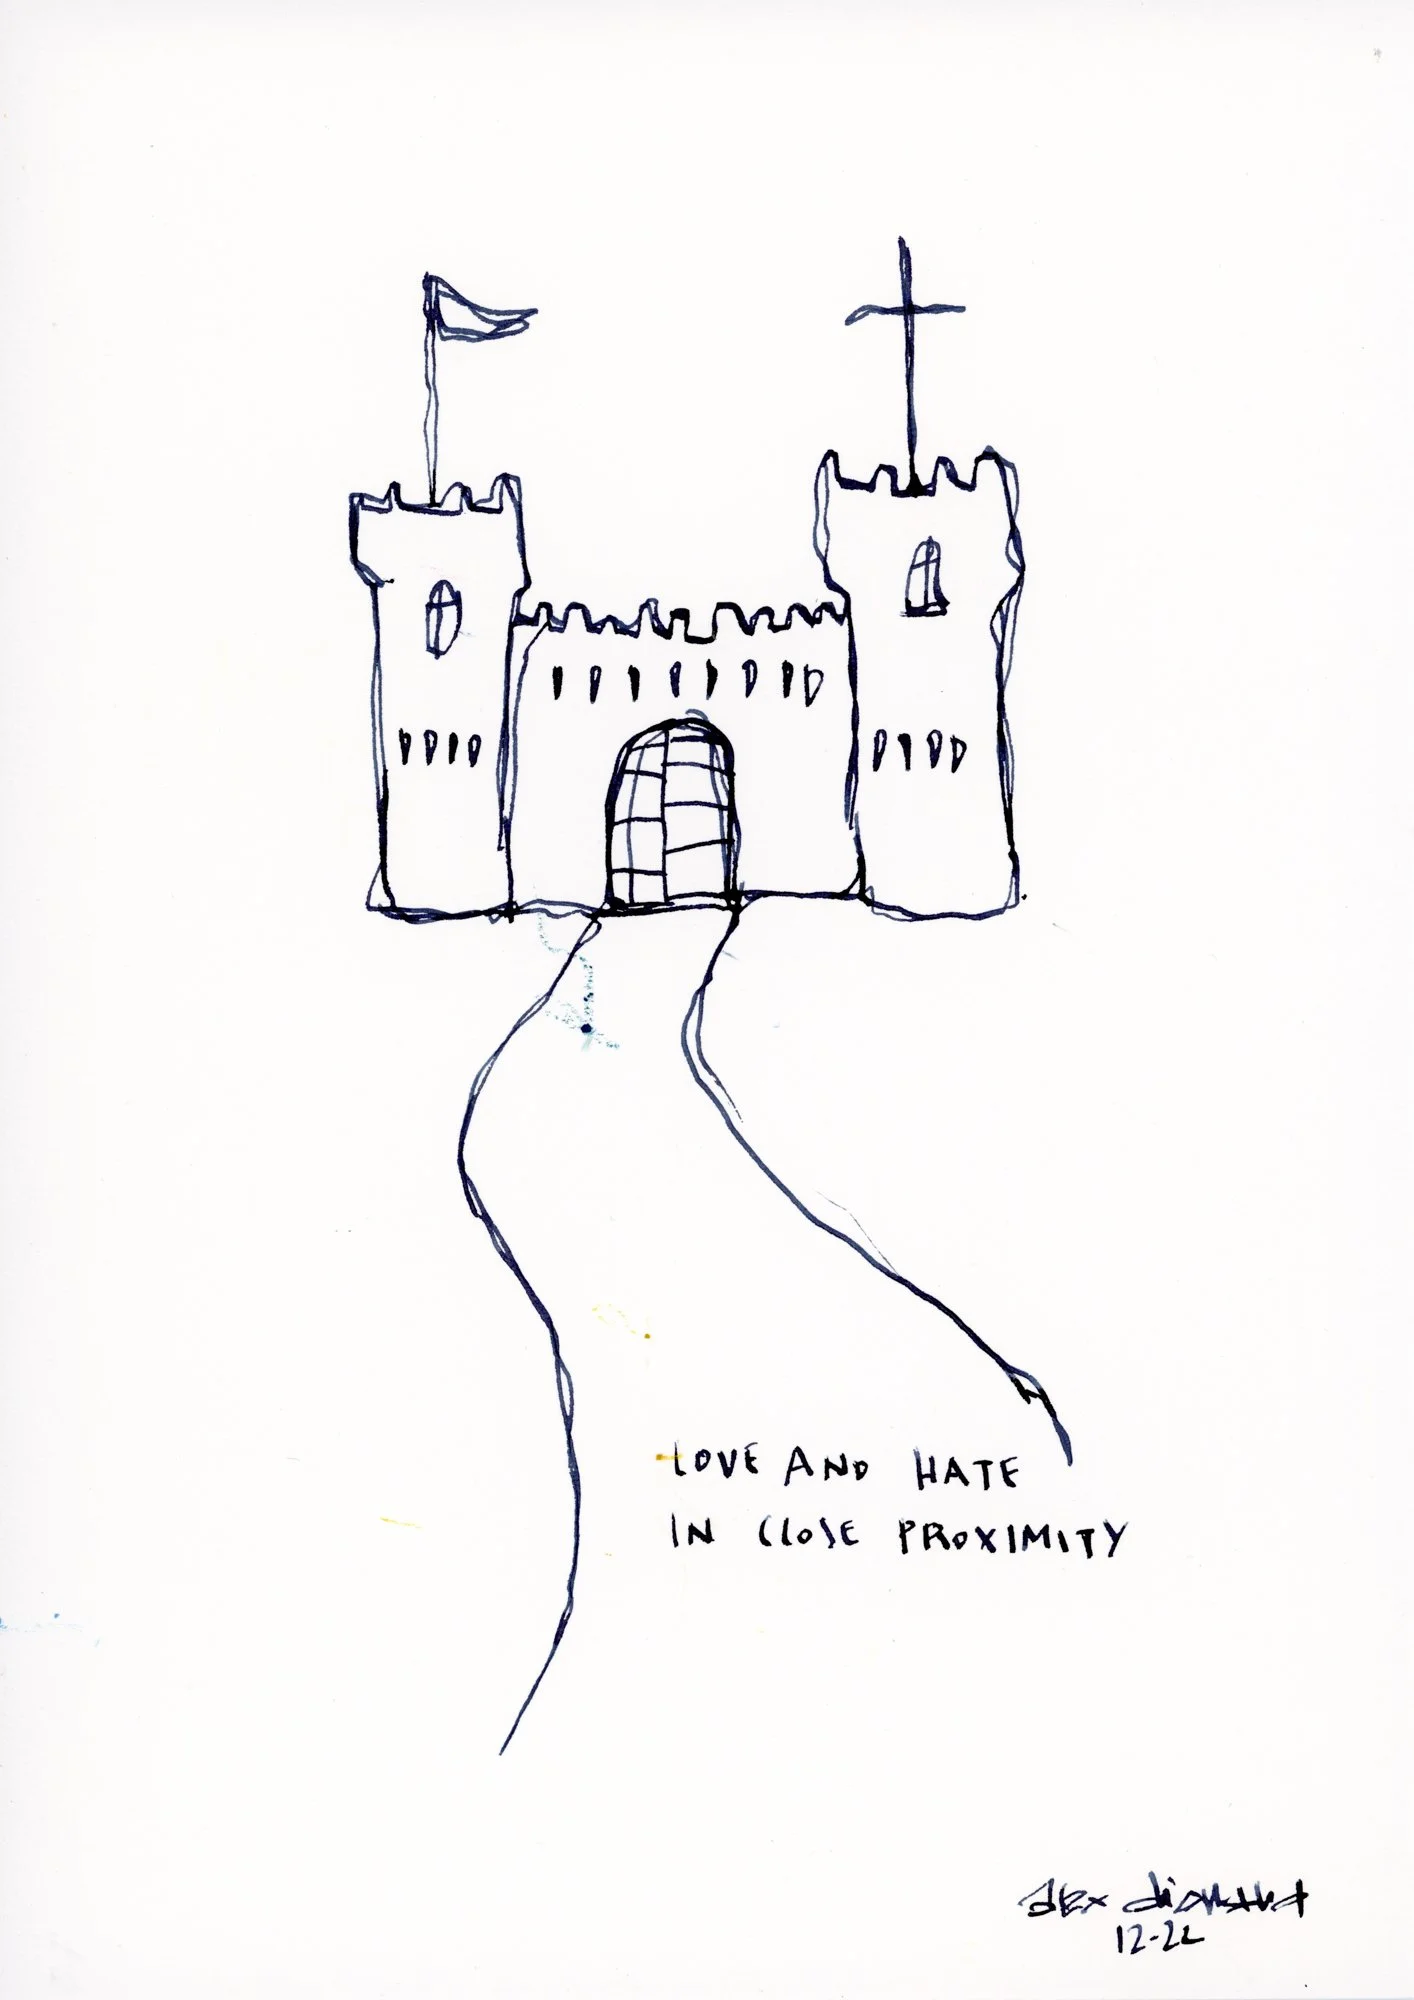 LOVE AND HATE
IN CLOSE PROXIMITY
alex diamond
12-22